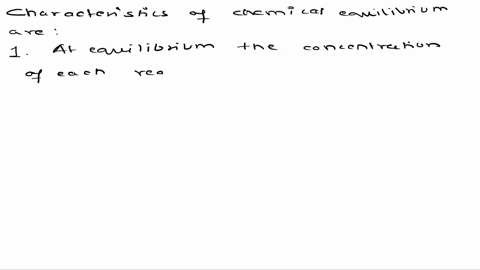 Characteristics of chemical equilibrium
are:
1. At equilibrium the concentration
of each rea